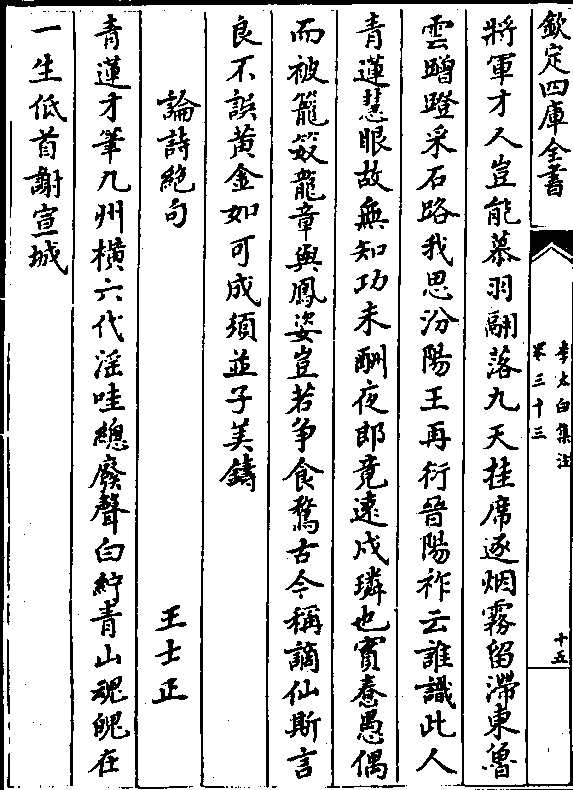 欽定四庫全書
李太白集注
卷三十三
十五
將軍才人豈能慕羽翮落九天挂席逐烟霧留滯東魯
雲蹭蹬采石路我思汾陽王再衍晉陽祚云誰識此人
青蓮慧眼故無知功未酬夜郎竟遠戍璘也實憃愚偶
而被籠笯龍章與鳳姿豈若爭食鶩古今稱謫仙斯言
良不誤黃金如可成須並子美鑄
論詩絶句
王士正
青蓮才筆九州橫六代淫哇總廢聲白紵青山魂魄在
一生低首謝宣城